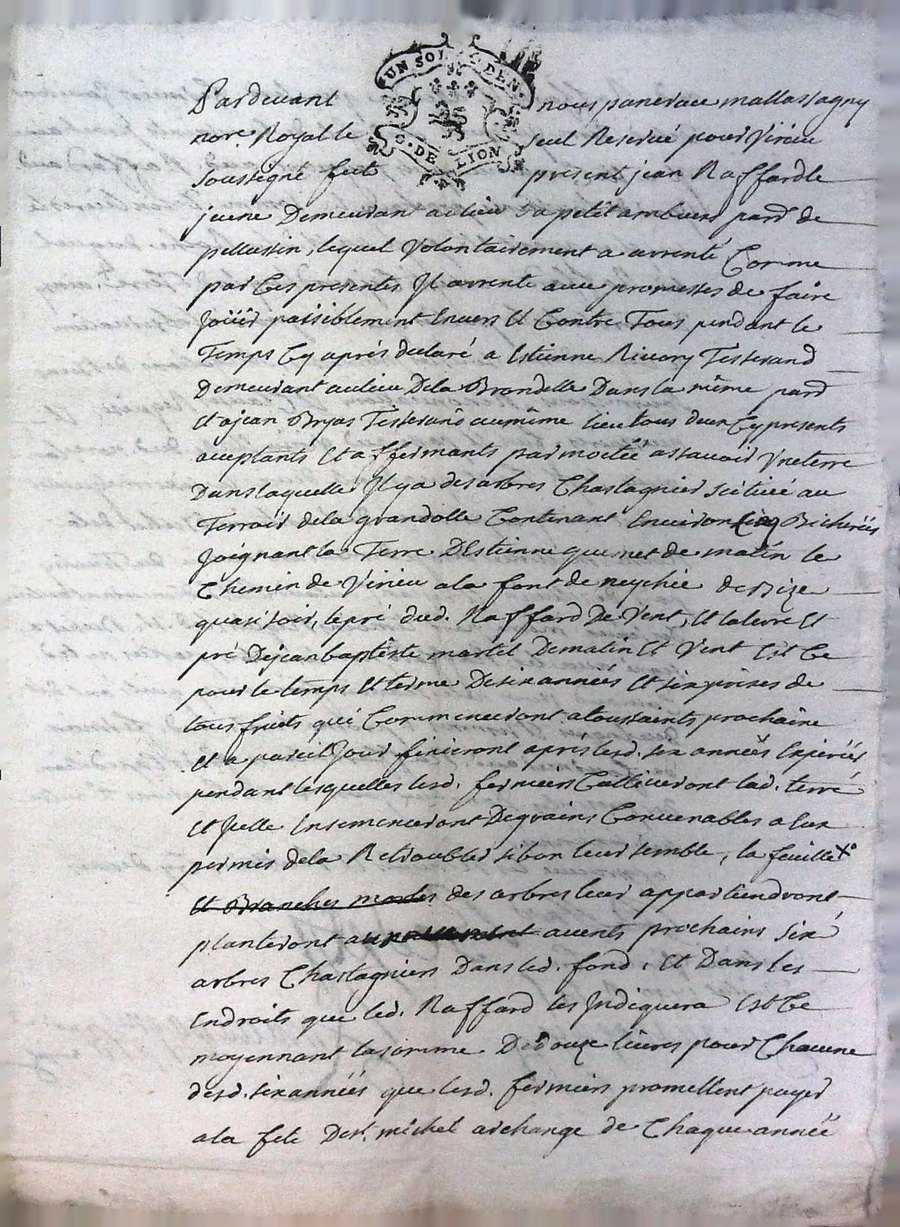 UN SOL DEN.
G. DE LION
Pardevant nous pancrace mallassagny
nore. Royal le seul Reservé pour Virieu
soussigné fut present jean Raffard le
jeune Demeurant au lieu petit ambuen parr. de
pellussin, lequel volontairement a arrenté Comme
par Ces presentes Il arrente avec promesses de faire
Joüir paisiblement Envers Et Contre Tous pendant le
Temps Cy aprés declaré a Estienne Rivory Tesserand
Demeurant au lieu De la Brondelle Dans la même parr
Et a jean Bryas Tesserand au même lieu tous deux Cy presents
acceptants Et affermants par moitié assavoir Une terre
Dans laquelle Il y a des arbres Chastagniers scitüée au
Terroir de la grandolle Contenant Environ Cinq Bicherées
Joignant la Terre D'Estienne quenet de matin le
Chemin de Virieu a la font de neychie de bize
quasi soir, le pré dud. Raffard De Vent, Et la terre Et
pré De jean baptiste martel De matin Et Vent Et Ce
pour le temps Et terme De six années Et six prises de
tous fruits qui Commenceront a toussaints prochaine
Et a pareil Jour finiront aprés lesd. six années Expirées
pendant lesquelles lesd. fermiers Cultiveront lad. terre
Et Icelle Ensemenceront De grains Convenables a Eux
permis de la Redoubler si bon leur semble, la feuille X°
Et Branches mortes des arbres leur appartiendront
planteront avents prochains six
arbres Chastagniers Dans led. fond, Et Dans les
Endroits que led. Raffard les Indiquera Et Ce
moyennant la somme De douze livres pour Chacune
desd. six années que lesd. fermiers promettent payer
a la fete De st. michel archange de Chaque année